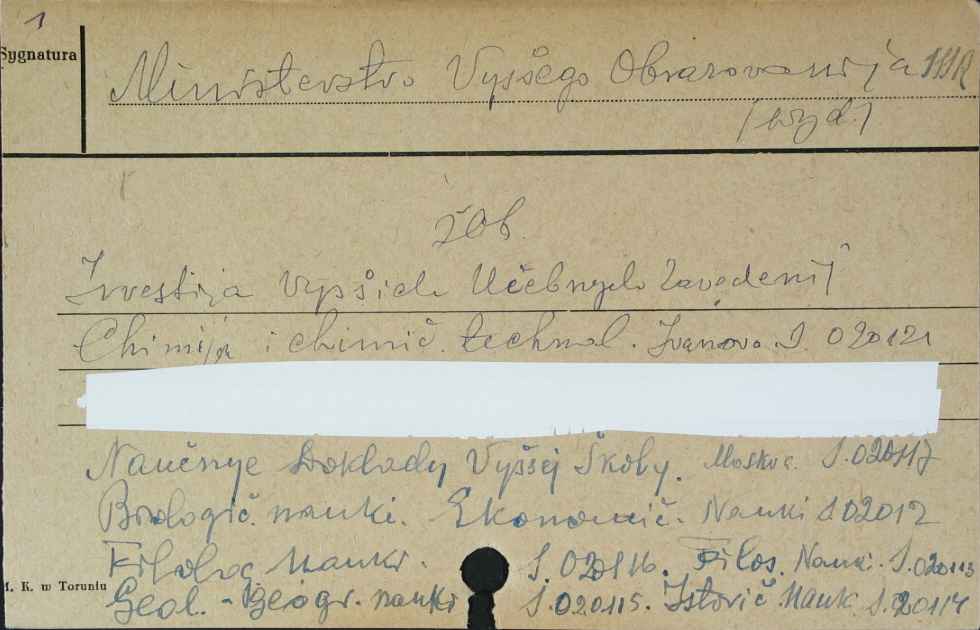 1
Sygnatura
Ministerstvo Vysšego Obrazovanija
(wyd.)
zob.
Izvestija Vysšich Učebnych Zavedenij
Chimija i chimič. technol. Ivanovo. S. 020121
Naučnye Doklady Vysšej Školy. Moskva. S.020117
Biologič. nauki. Ekonomič. Nauki S 02012
Filolog nauki. S. 020116. Filos. Nauki. S.020113
M. K. w Toruniu
Geol. - geogr. nauki S.020115. Istorič Nauk S.020114